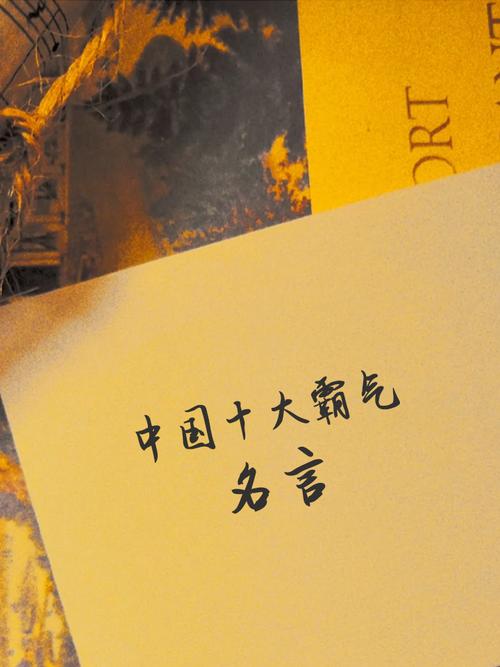 ORT
中国十大霸气
名言